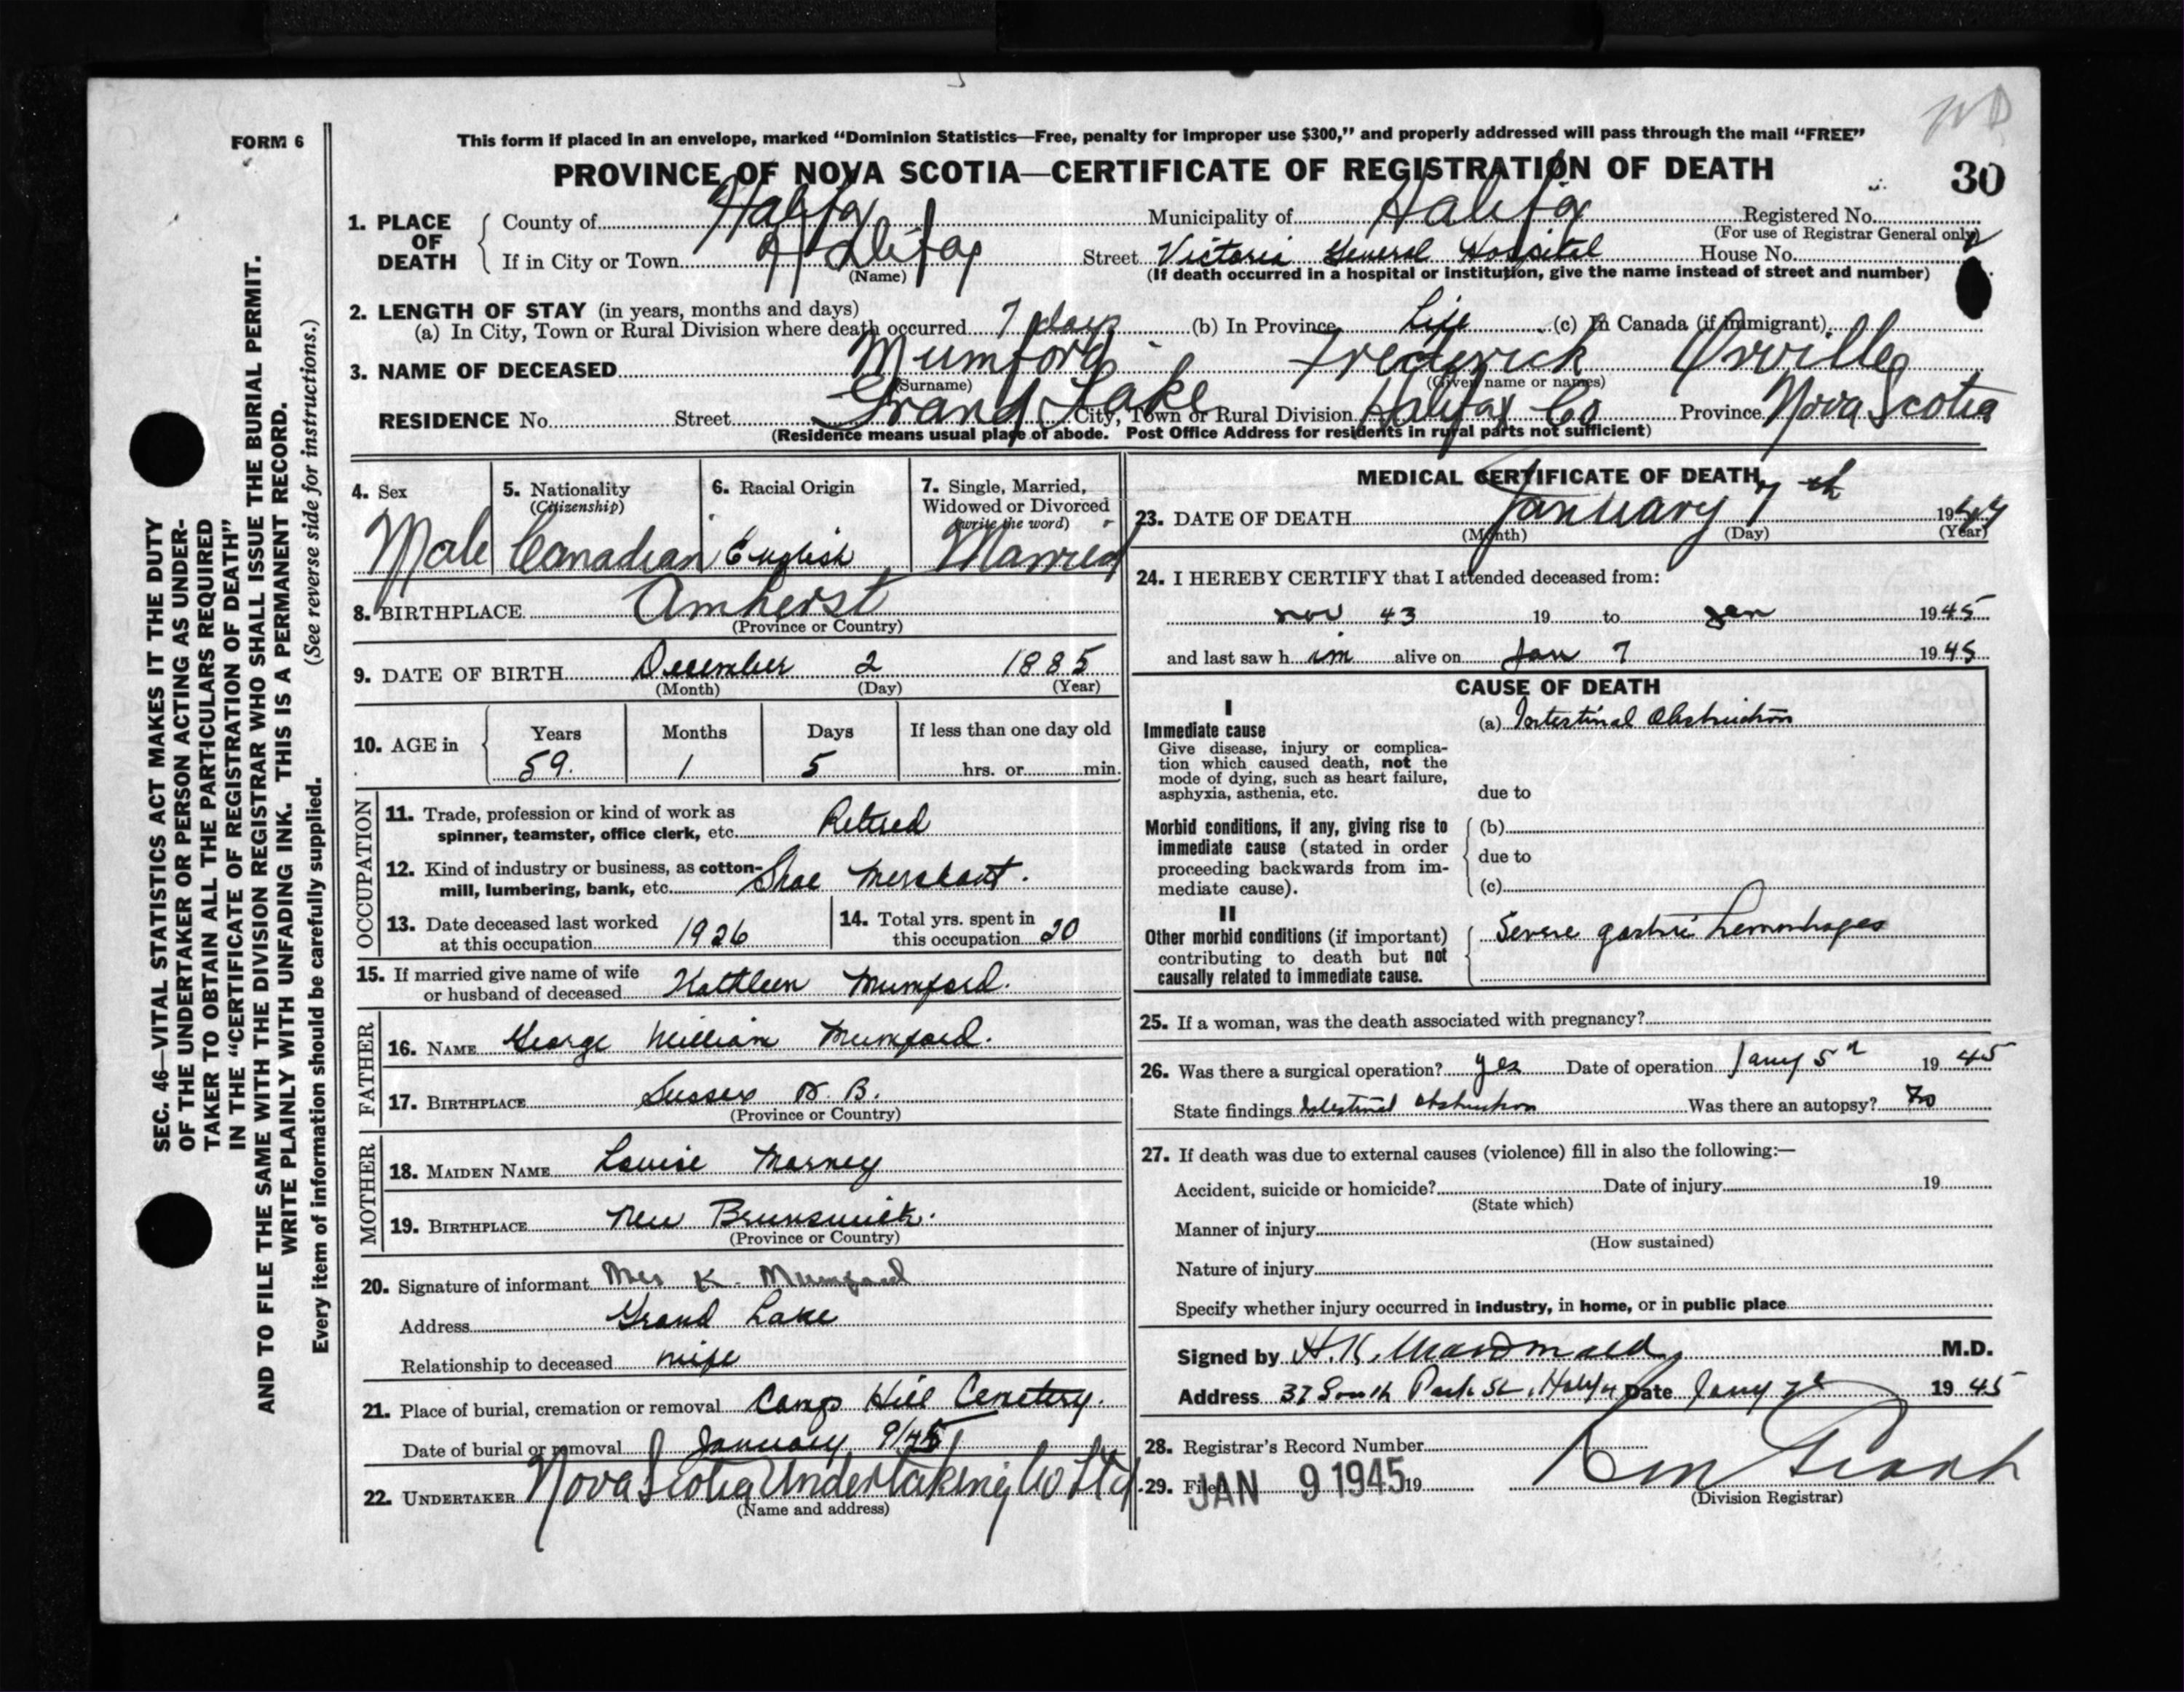 FORM 6
This form if placed in an envelope, marked “Dominion Statistics—Free, penalty for improper use $300,” and properly addressed will pass through the mail “FREE”
PROVINCE OF NOVA SCOTIA—CERTIFICATE OF REGISTRATION OF DEATH
30
1. PLACE OF DEATH
County of Halifax Municipality of Halifax Registered No.
(For use of Registrar General only)
If in City or Town Halifax Street Victoria General Hospital House No.
(Name) (If death occurred in a hospital or institution, give the name instead of street and number)
2. LENGTH OF STAY (in years, months and days)
(a) In City, Town or Rural Division where death occurred 7 days (b) In Province Life (c) In Canada (if immigrant)
3. NAME OF DECEASED Mumford Frederick Orville
(Surname) (Given name or names)
RESIDENCE No. Street Grand Lake City, Town or Rural Division Halifax Co Province Nova Scotia
(Residence means usual place of abode. Post Office Address for residents in rural parts not sufficient)
4. Sex
Male
5. Nationality
(Citizenship)
Canadian
6. Racial Origin
English
7. Single, Married,
Widowed or Divorced
(write the word)
Married
8. BIRTHPLACE Amherst
(Province or Country)
9. DATE OF BIRTH December 2 1885
(Month) (Day) (Year)
10. AGE in
Years Months Days If less than one day old
59. 1 5 hrs. or min.
OCCUPATION
11. Trade, profession or kind of work as
spinner, teamster, office clerk, etc. Retired
12. Kind of industry or business, as cotton-
mill, lumbering, bank, etc. Shoe Merchant.
13. Date deceased last worked
at this occupation 1926
14. Total yrs. spent in
this occupation 20
15. If married give name of wife
or husband of deceased Kathleen Mumford.
FATHER
16. NAME George William Mumford.
17. BIRTHPLACE Sussex N. B.
(Province or Country)
MOTHER
18. MAIDEN NAME Louise
19. BIRTHPLACE New Brunswick.
(Province or Country)
20. Signature of informant Mrs K. Mumford
Address Grand Lake
Relationship to deceased wife
21. Place of burial, cremation or removal Camp Hill Cemetery.
Date of burial or removal January 9/45
22. UNDERTAKER Nova Scotia Undertaking Co Ltd.
(Name and address)
MEDICAL CERTIFICATE OF DEATH
23. DATE OF DEATH January 7th 1944
(Month) (Day) (Year)
24. I HEREBY CERTIFY that I attended deceased from:
nov 43 19 to Jan 1945
and last saw h im alive on Jan 7 1945
CAUSE OF DEATH
I
Immediate cause
Give disease, injury or complica-
tion which caused death, not the
mode of dying, such as heart failure,
asphyxia, asthenia, etc.
(a) Intestinal Obstruction
due to
Morbid conditions, if any, giving rise to
immediate cause (stated in order
proceeding backwards from im-
mediate cause).
(b)
due to
(c)
II
Other morbid conditions (if important)
contributing to death but not
causally related to immediate cause.
Severe gastric hemorrhages
25. If a woman, was the death associated with pregnancy?
26. Was there a surgical operation? yes Date of operation Jany 5 1945
State findings Intestinal obstruction Was there an autopsy? No
27. If death was due to external causes (violence) fill in also the following:—
Accident, suicide or homicide? Date of injury 19
(State which)
Manner of injury
(How sustained)
Nature of injury
Specify whether injury occurred in industry, in home, or in public place
Signed by H.K. MacDonald M.D.
Address 37 South Park St. Date Jany 7 1945
28. Registrar's Record Number
29. Filed JAN 9 1945 19
(Division Registrar)
SEC. 46—VITAL STATISTICS ACT MAKES IT THE DUTY
OF THE UNDERTAKER OR PERSON ACTING AS UNDER-
TAKER TO OBTAIN ALL THE PARTICULARS REQUIRED
IN THE “CERTIFICATE OF REGISTRATION OF DEATH”
AND TO FILE THE SAME WITH THE DIVISION REGISTRAR WHO SHALL ISSUE THE BURIAL PERMIT.
WRITE PLAINLY WITH UNFADING INK. THIS IS A PERMANENT RECORD.
Every item of information should be carefully supplied. (See reverse side for instructions.)